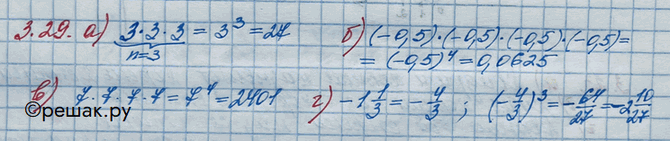 3.29. а) 3·3·3 = 3³ = 27
n=3
б) (-0,5)·(-0,5)·(-0,5)·(-0,5)=
= (-0,5)⁴ = 0,0625
в) 7·7·7·7 = 7⁴ = 2401
г) -1 1/3 = -4/3 ; (-4/3)³ = -64/27 = -2 10/27
©решак.ру